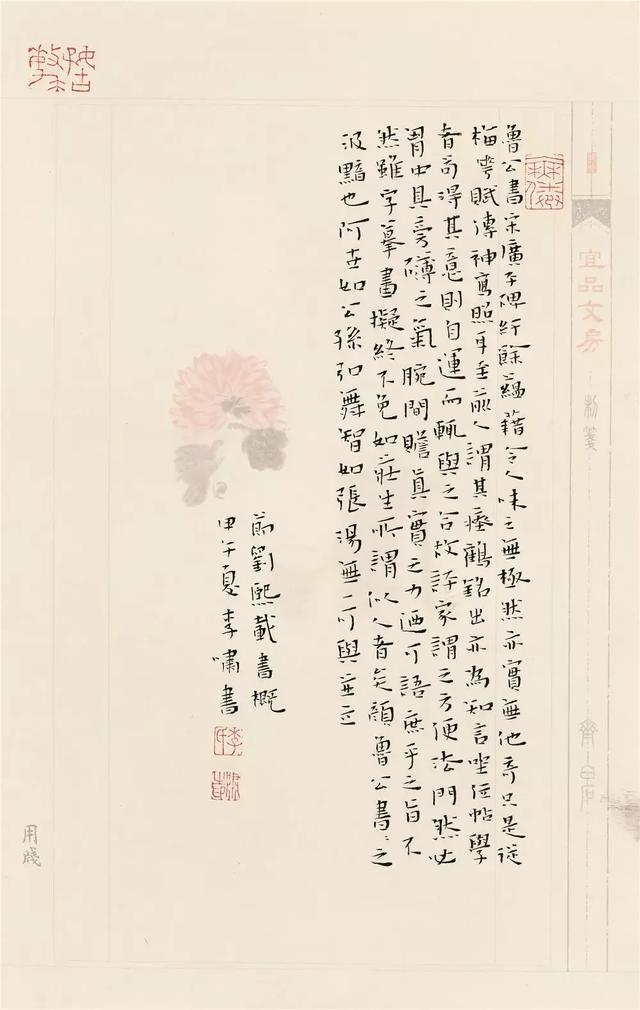 魯公書宋廣平碑紆餘蘊藉令人味之無極然亦實無他奇只是從
梅華賦傳神寫照耳至前人謂其瘞鶴銘出亦為知言坐位帖學
者苟得其意則自運而輒與之合故評家謂之方便法門然必
胷中具旁礴之氣腕間贍真實之力迺可語庶乎之旨不
然雖字摹畫擬終不免如莊生所謂似人者矣顏魯公書〻之
汲黯也阿世如公孫弘舞智如張湯無一可與並立
節劉熙載書概
甲午夏李嘯書
宜品文房
制箋
齊白石
用牋